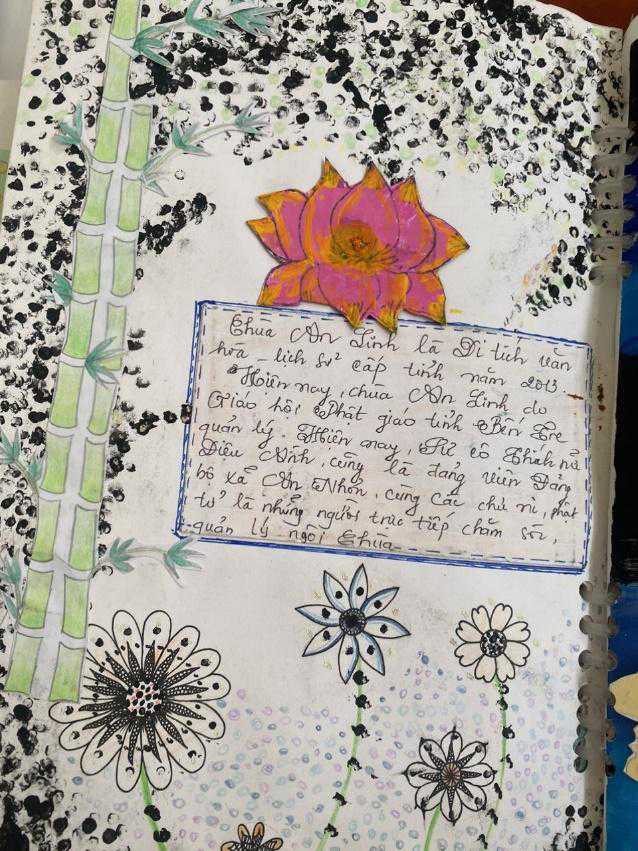 Chùa An Linh là Di tích văn
hóa - lịch sử cấp tỉnh năm 2013.
Hiện nay, chùa An Linh do
Giáo hội Phật giáo tỉnh Bến Tre
quản lý. Hiện nay, Sư cô Thích nữ
Diệu Ninh, cũng là đảng viên Đảng
bộ xã An Nhơn, cùng các chú ni, phật
tử là những người trực tiếp chăm sóc,
quản lý ngôi chùa